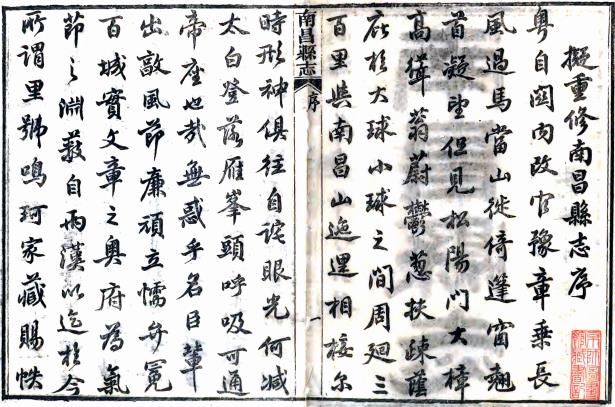 擬重修南昌縣志序
粵自關內改官豫章乘長
風過馬當山徙倚蓬窗翹
首凝望但見松陽門大樟
高聳蓊蔚鬱蔥扶疎蔭
庇於大球小球之間周迴三
百里與南昌山迤邐相接尔
南昌縣志
序
一
時形神俱往自詫眼光何减
太白登落雁峯頭呼吸可通
帝座也哉無惑乎名臣輩
出敵風節廉頑立懦弁冕
百城實文章之奧府為氣
節之淵藪自兩漢以迄於今
所謂里號鳴珂家藏賜帙